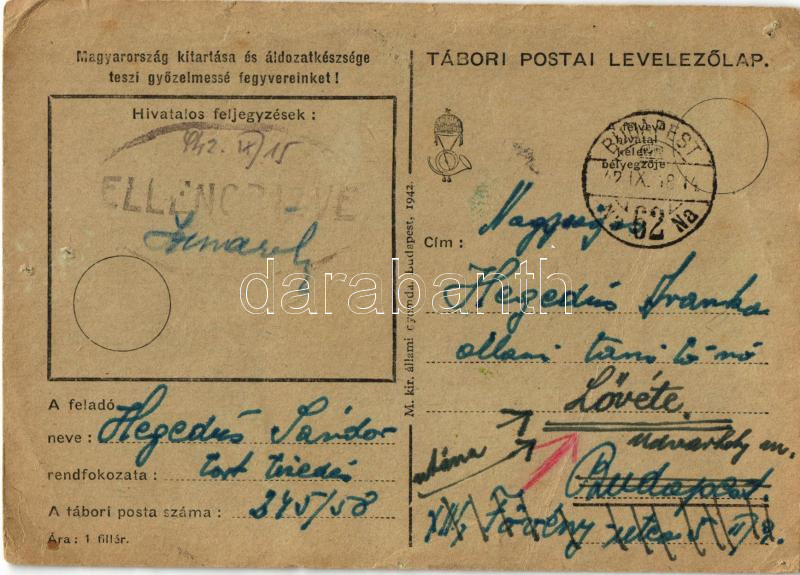 Magyarország kitartása és áldozatkészsége
teszi győzelmessé fegyvereinket!
Hivatalos feljegyzések :
942. IX/15
ELLENŐRIZVE
A feladó
neve : Hegedűs Sándor
rendfokozata : tart tizedes
A tábori posta száma : 245/58
Ára : 1 fillér.
M. kir. állami nyomda, Budapest, 1942.
TÁBORI POSTAI LEVELEZŐLAP.
felvevő
hivatal
keleti
bélyegzője
BUDAPEST
42 IX. 18.14
62 Na
Cím : Nagyságos
Hegedűs Ivanka
állami tanítónő
Lövéte.
Udvarhely m.
utána
Budapest.
XIII, Fövény utca 5 II/2.
darabanth